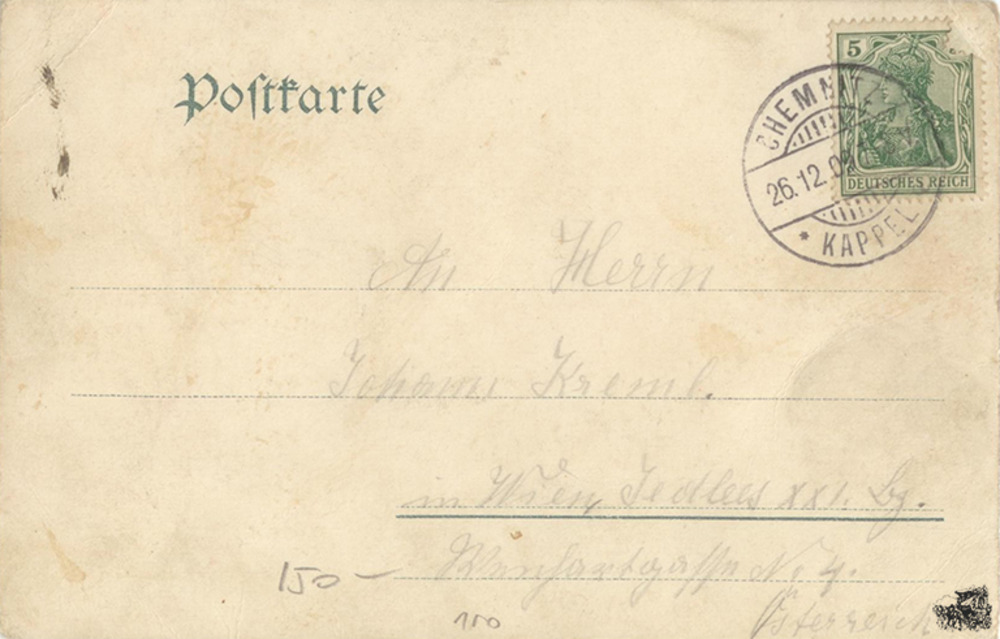 Postkarte
5
DEUTSCHES REICH
CHEMNITZ
26.12.0
* KAPPEL
An Herrn
Johann Kreml.
in Wien, Jedlees XXI. Bz.
No 4.
Österreich
150 –
150